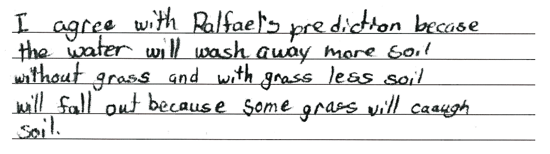 I agree with Ralfael's prediction becase
the water will wash away more soil
without grass and with grass less soil
will fall out because some grass will caaugh
soil.